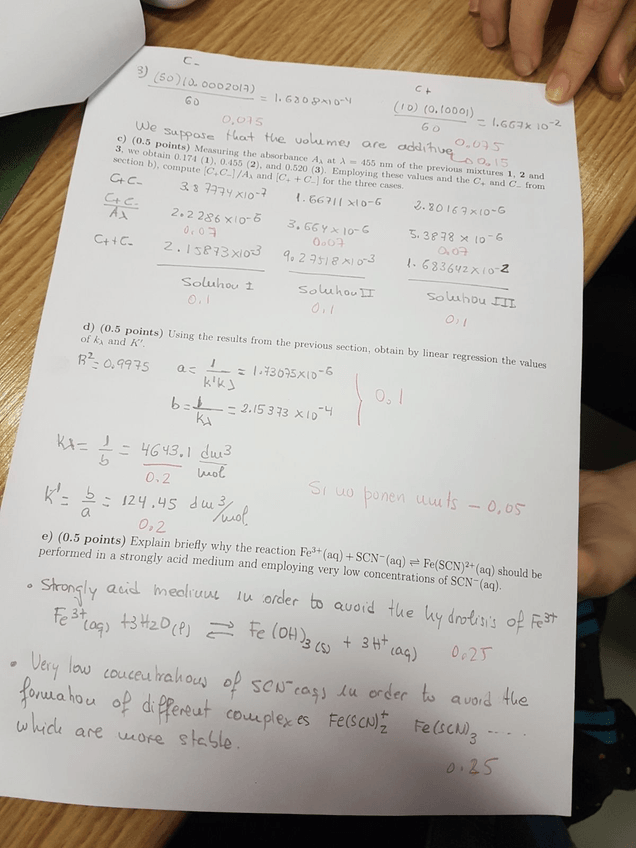 C-
C+
3) (50)(0.0002017) / 60 = 1.6808x10-4
(10) (0,10001) / 60 = 1.667x 10-2
0,075
0.075
We suppose that the volumes are additive
0.15
c) (0.5 points) Measuring the absorbance Aλ at λ = 455 nm of the previous mixtures 1, 2 and
3, we obtain 0.174 (1), 0.455 (2), and 0.520 (3). Employing these values and the C+ and C− from
section b), compute [C+C−]/Aλ and [C+ + C−] for the three cases.
C+C- 3.87774x10-7 1.66711 x10-6 2.80167x10-6
C+C- / Aλ 2.2286x10-6 3.664x10-6 5.3878 x 10-6
0,07 0,07 0,07
C++C- 2.15873x10-3 9.27518x10-3 1.683642x10-2
Solution I Solution II Solution III
0.1 0,1 0,1
d) (0.5 points) Using the results from the previous section, obtain by linear regression the values
of kλ and K'.
R2=0,9975 a= 1/K'Kλ = 1.73075x10-6
0,1
b= 1/Kλ = 2.15373 x10-4
Kλ= 1/b = 4643.1 dm3/mol
0.2
K'= b/a = 124.45 dm3/mol.
0,2
Si no ponen units - 0,05
e) (0.5 points) Explain briefly why the reaction Fe3+(aq) + SCN−(aq) ⇌ Fe(SCN)2+(aq) should be
performed in a strongly acid medium and employing very low concentrations of SCN−(aq).
• Strongly acid medium in order to avoid the hydrolisis of Fe3+
Fe3+(aq) +3H2O(l) ⇌ Fe(OH)3(s) + 3H+(aq) 0,25
• Very low concentrations of SCN-(aq) in order to avoid the
formation of different complexes Fe(SCN)2+ Fe(SCN)3 ....
which are more stable.
0.25